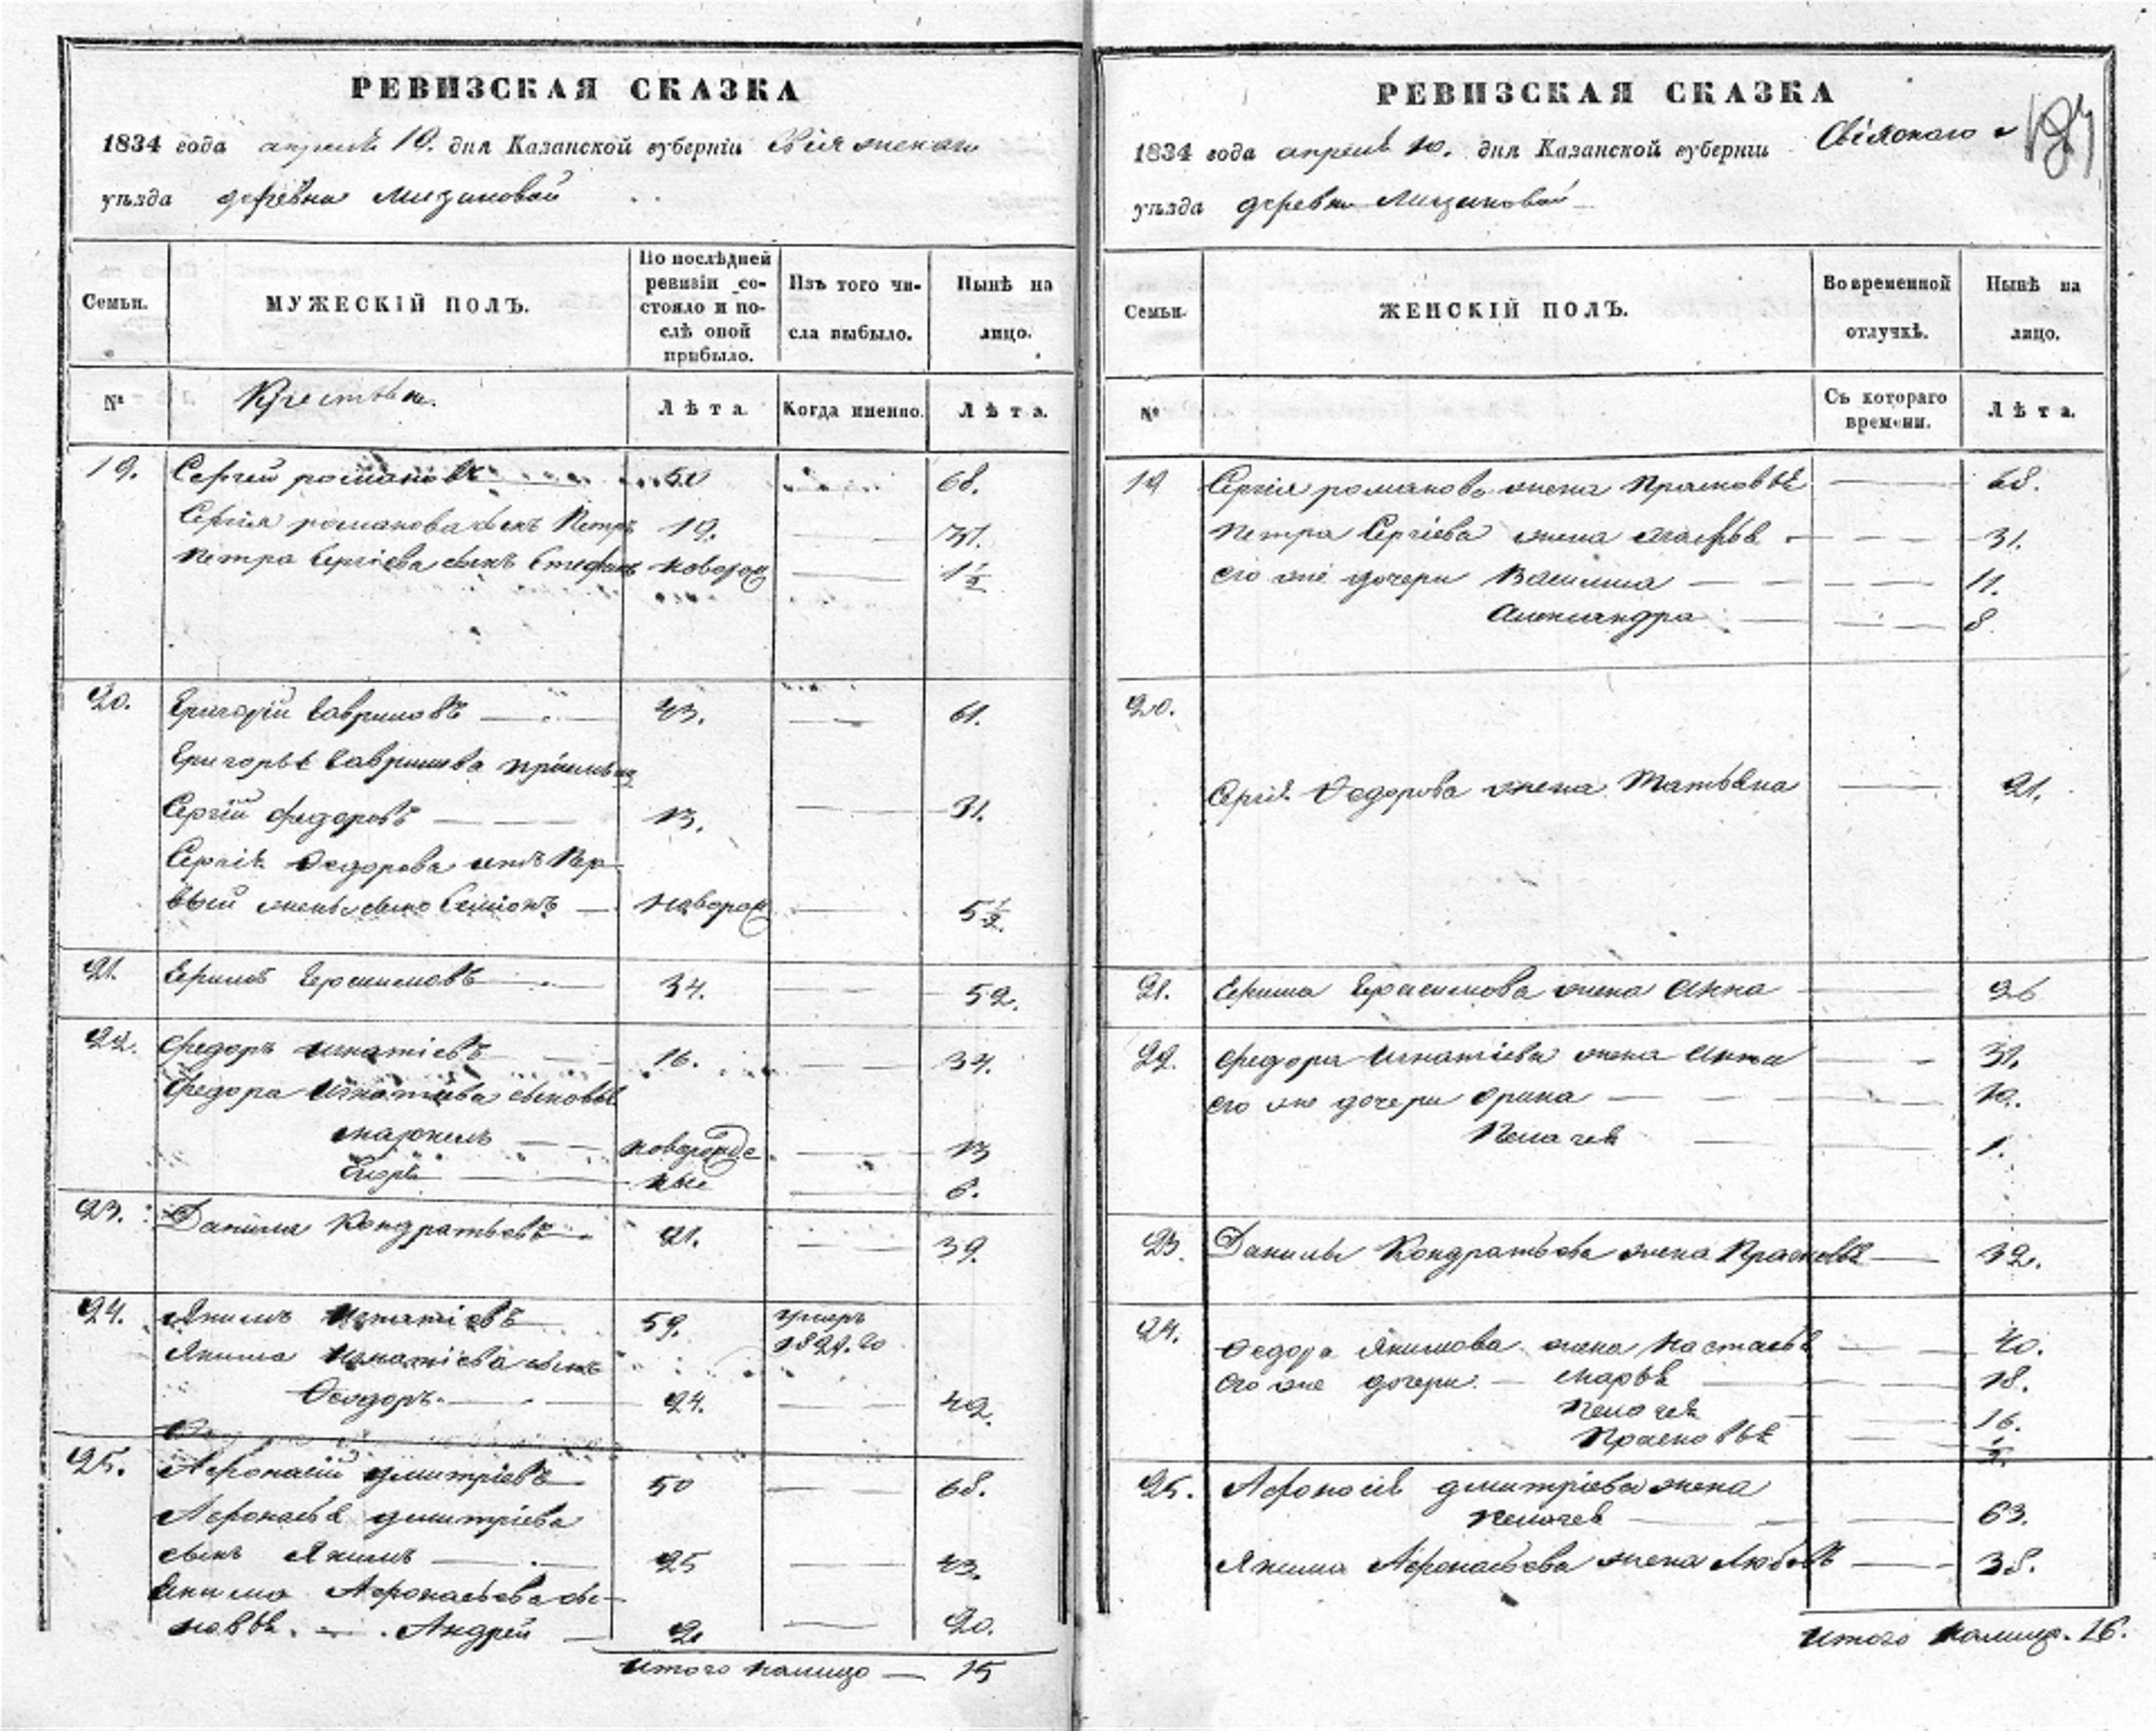 РЕВИЗСКАЯ СКАЗКА
1834 года апреля 10. дня Казанской губерніи Свіяжскаго
уѣзда деревни Мизиновой
Семьи.
МУЖЕСКІЙ ПОЛЪ.
По послѣдней
ревизіи со-
стояло и по-
слѣ оной
прибыло.
Изъ того чи-
сла выбыло.
Нынѣ на
лицо.
№
Крестьяне.
Лѣта.
Когда именно.
Лѣта.
19. Сергей романовъ 50 68.
Сергія романова сынъ Петръ 19. 37.
Петра Сергіева сынъ Стефанъ новорож 1½
20. Григорій Гавриловъ 43. 61.
Григорья Гаврилова пріимышъ
Сергій федоровъ 13. 31.
Сергія Ѳедорова отъ пер-
вый жены сынъ Семіонъ новорож 5½.
21. Ефимъ Герасимовъ 34. 52.
22. федоръ Игнатіевъ 16. 34.
федора Игнатіева сыновья
маркелъ новорожде 13
Егоръ ные 6.
23. Данила Кондратьевъ 21. 39.
24. Якимъ Игнатіевъ 59. умеръ
Якима Игнатіева сынъ
Ѳеодоръ 24. 42.
25. Афонасій дмитріевъ 50 68.
Афонасья дмитріева
сынъ Якимъ 25 43.
Якима Афонасьева сы-
новья. Андрей 2 20.
Итого налицо 15
РЕВИЗСКАЯ СКАЗКА
1834 года апреля 10. дня Казанской губерніи
уѣзда деревни Мизиновой
Семьи.
ЖЕНСКІЙ ПОЛЪ.
Во временной
отлучкѣ.
Нынѣ на
лицо.
№
Съ котораго
времени.
Лѣта.
19 Сергія романова жена Прасковья 68.
Петра Сергіева жена 31.
его же дочери Василиса 11.
Александра 8
20.
Сергія Ѳедорова жена Татьяна 21.
21. Ефима Герасимова жена Анна 26
22. федора Игнатіева жена Анна 31.
его же дочери Орина 10.
Пелагея 1.
23. Данилы Кондратьева жена Прасковья 32.
24. Ѳедора Якимова жена Настасья 40.
его же дочери Марья 18.
Пелагея 16.
Прасковья
25. Афонасія дмитріева жена
Пелагея 63.
Якима Афонасьева жена Любовь 38.
Итого налицо. 16.